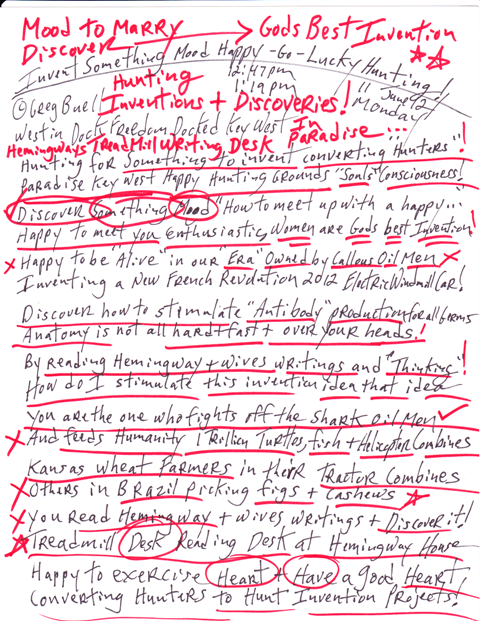 Mood to Marry → Gods Best Invention
Discover
Invent Something Mood Happy-Go-Lucky Hunting!
Hunting 12:47pm
1:19pm
11 June 2012
Monday
© Greg Buell Inventions + Discoveries!
West in Dock Freedom Docked Key West In Paradise...
Hemingways TreadMill Writing Desk
Hunting for Something to invent converting Hunters"!
Paradise Key West Happy Hunting Grounds "Souls" Consciousness!
Discover Something Mood "How to meet up with a happy..."
Happy to meet you enthusiastic, Women are Gods best Invention!
x Happy to be "Alive" in our "Era" Owned by Callous Oil Men x
Inventing a New French Revolution 2012 Electric Windmill Car!
Discover how to stimulate "Antibody" production for all germs
Anatomy is not all hard + fast + over your heads!
By reading Hemingway + Wives writings and "Thinking"!
How do I stimulate this invention idea that idea
You are the one who fights off the Shark Oil Men ✓
x And feeds Humanity 1 Trillion Turtles, fish + Helicopter Combines
Kansas wheat Farmers in their Tractor Combines
x Others in Brazil Picking figs + Cashews ★
x You Read Hemingway + Wives writings + Discover it!
★ Treadmill Desk Reading Desk at Hemingway House
Happy to exercise Heart + Have a good Heart,
Converting Hunters to Hunt Invention Projects!